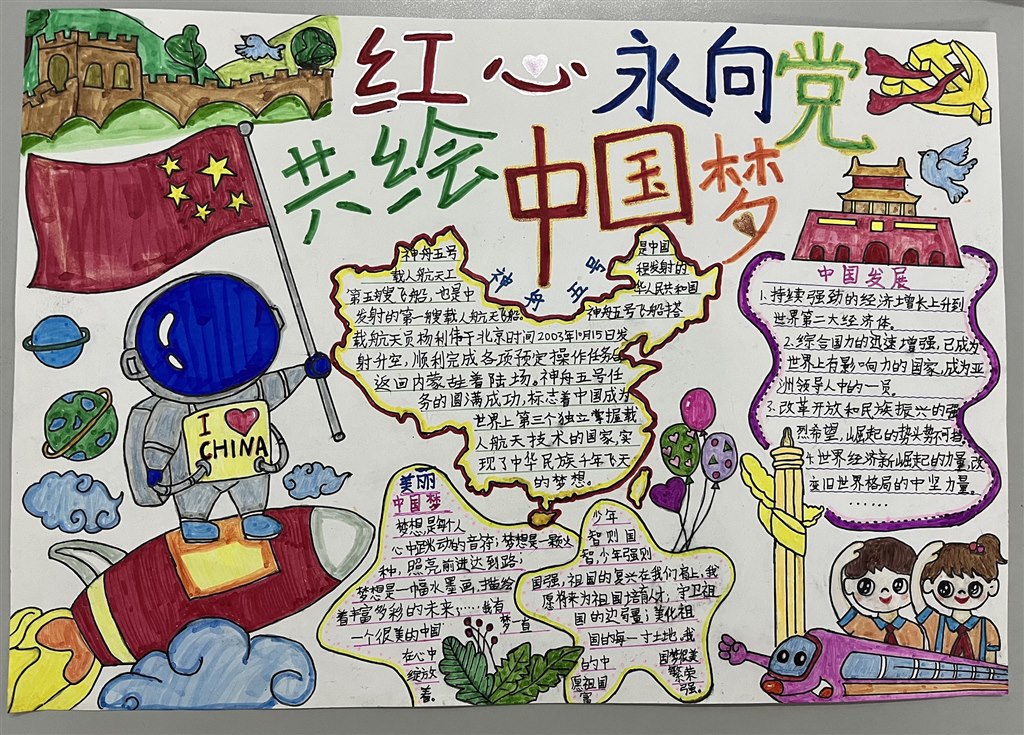 红心永向党
共绘中国梦
神舟五号
神舟五号
载人航天工
第五艘飞船,也是中
发射的第一艘载人航天飞船。
是中国
程发射的
华人民共和国
神舟五号飞船搭
载航天员杨利伟于北京时间2003年10月15日发
射升空,顺利完成各项预定操作任务后
返回内蒙古主着陆场。神舟五号任
务的圆满成功,标志着中国成为
世界上第三个独立掌握载
人航天技术的国家,实
现了中华民族千年飞天
的梦想。
中国发展
1.持续强劲的经济增长上升到
世界第二大经济体。
2.综合国力的迅速增强,已成为
世界上有影响力的国家,成为亚
洲领导人中的一员。
3.改革开放和民族振兴的强
烈希望,崛起的势头势不可挡
4.世界经济新崛起的力量,改
变旧世界格局的中坚力量。
......
I CHINA
美丽
中国梦
梦想是每个人
心中跳动的音符;梦想是一颗火
种,照亮前进达到路;
梦想是一幅水墨画,描绘
着丰富多彩的未来;……我有
一个很美的中国梦一直
在心中
绽放
着。
少年
智则国
智,少年强则
国强,祖国的复兴在我们肩上,我
愿将来为祖国培育人才;守卫祖
国的边疆;美化祖
国的每一寸土地。我
的中国梦很美
愿祖国繁荣
富强。